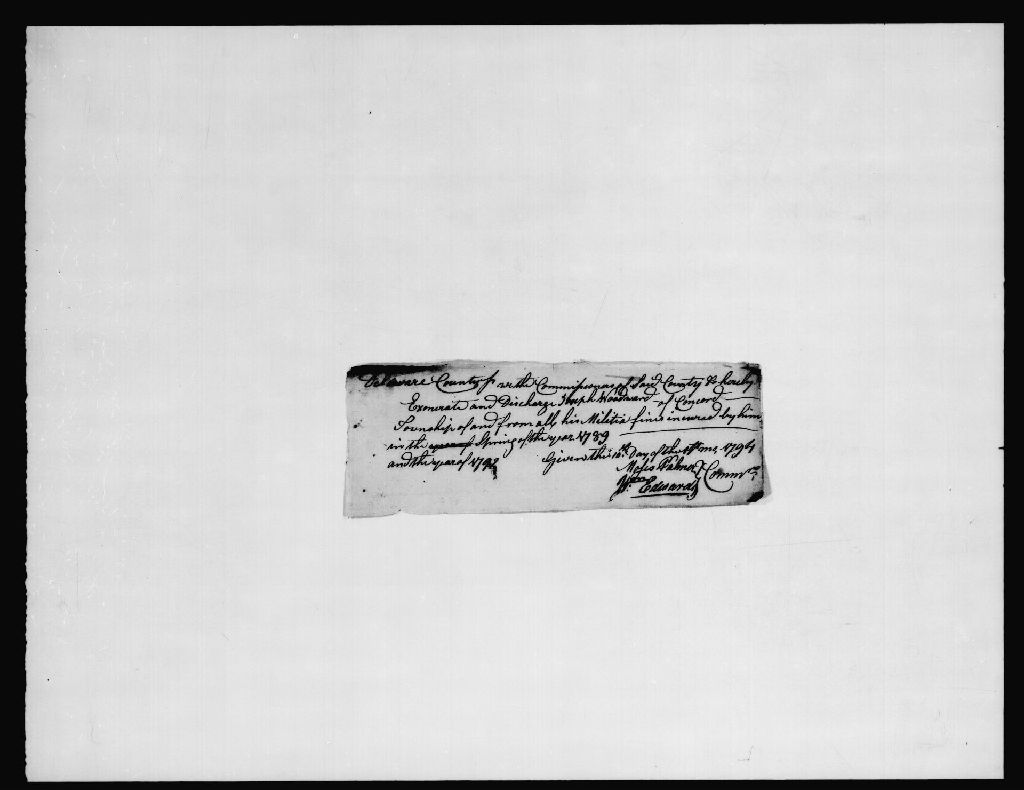 Delaware County ss We the Commissioners of Said County Do hereby
Exonerate and Discharge Joseph of Concord
Township of and from all his Militia fines incured by him
in the Spring of the year 1789
and the year of 1790 Given this Day of the 1st mo. 1794
Moses Palmer Commrs
Wm Edwards